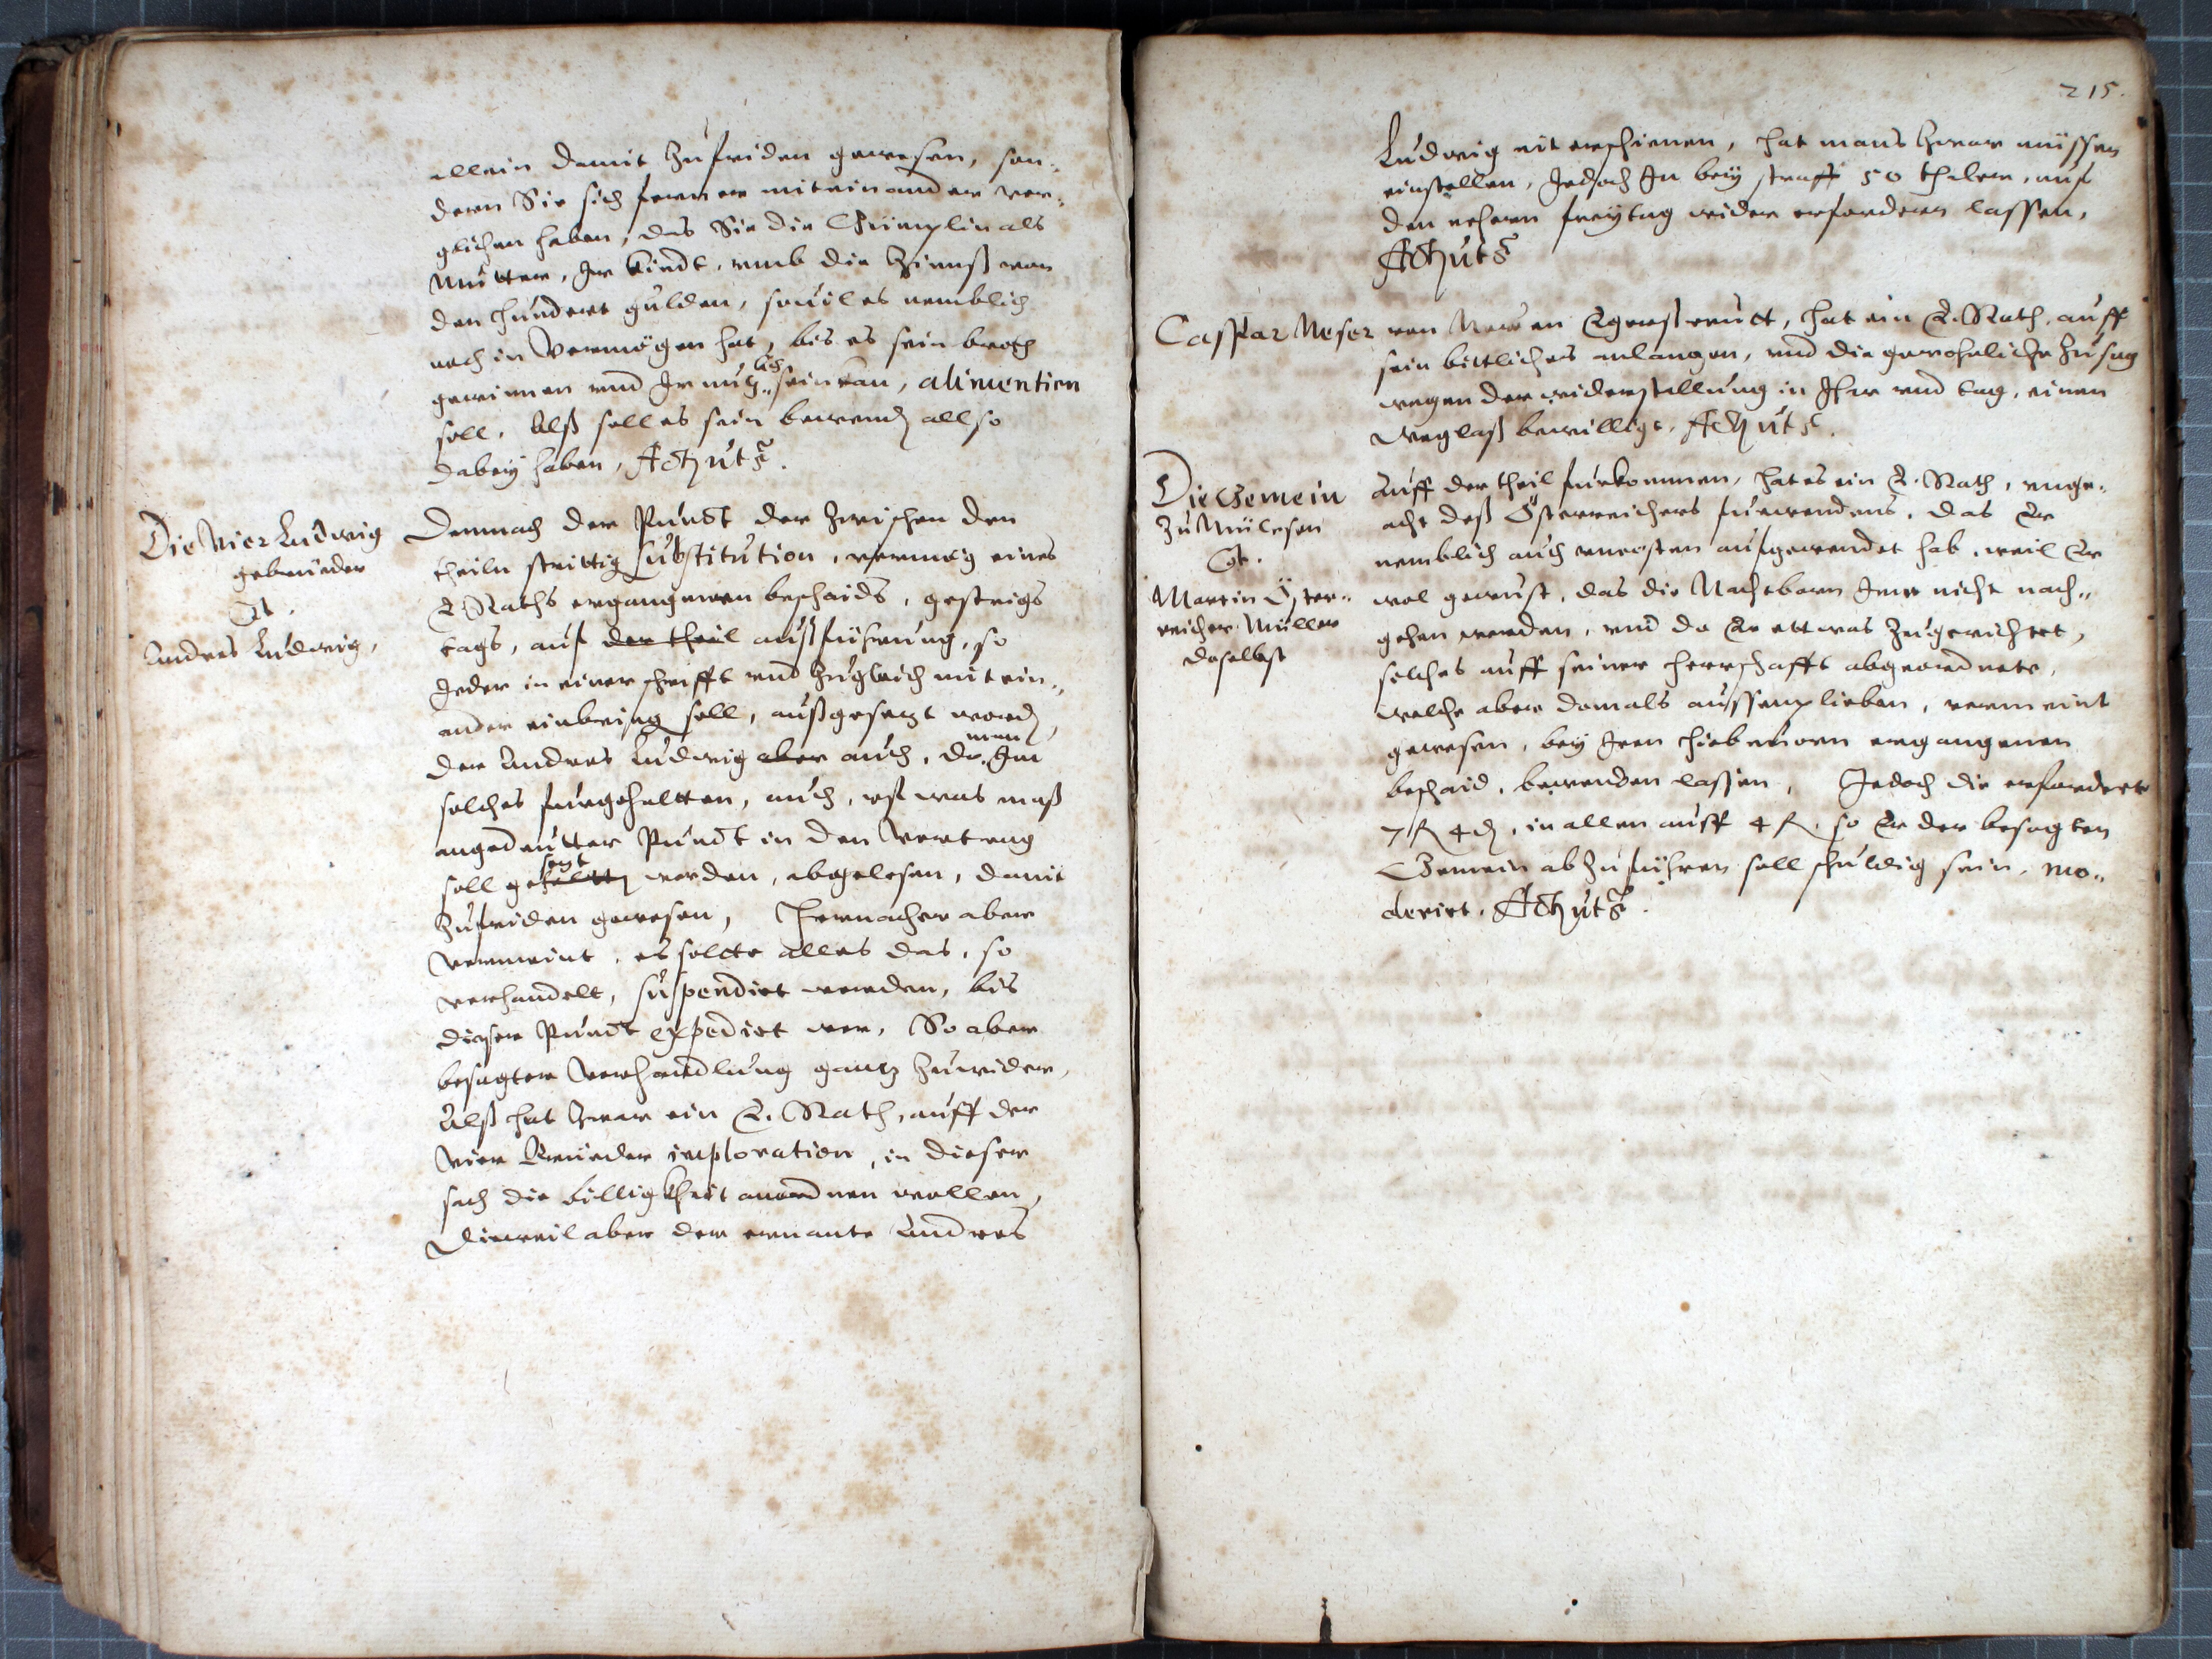 allein damit zufriden gewesen, son-
dern Sie sich ferner miteinander ver-
glichen haben, das Sie die Chrümplin als
Mutter, Jr kindt, umb die Zinnß von
den hundert gulden, souil es nemblich
noch in Vermögen hat, bis es sein broth
gewinnen und Jr nutzlich sein kan, alimentirn
soll. Alß soll es sein bewend also
dabey haben, Act: ut s.
Die Vier Ludwig
gebrüder
Ct.
Andres Ludwig,
Demnach der Punct der zwischen den
theiln strittig Substitution, vermög eines
E. Raths ergangenen beschaids, gestrigs
tags, auf der theil außführung, so
Jeder in einer schrifft und zugleich mit ein-
ander einbring soll, außgesezt word,
der Andres Ludwig aber auch, da man Jm
solches furgehaltten, auch, uf was maß
angedeutter Punct in den Vertrag
soll gesezt werden, abgelesen, damit
zufriden gewesen, Hernacher aber
vermeint, es soltte alles das, so
verhandelt, suspendirt werden, bis
dieser Punct expedirt wer, So aber
besagter verhandlung gantz zuwider,
Alß hat zwar ein E. Rath, auff der
Vier Brüeder imploration, in dieser
sach die billigkheit anordnen wollen,
Dieweil aber der ernante Andres
215.
Ludwig nit erschienen, hat mans zwar müssen
einstellen, Jedoch Jn bey straff 50 thaler, auf
den nehern freytag wider erfordern lassen,
Act: ut s.
Caspar Neser von Newen Egersreutt, hat ein E. Rath, auff
sein bittliches anlangen, und die gewohnliche zusag
wegen der widerstellung in Jhar und tag, einen
Weglaß bewilligt. Act: ut s.
Die Gemein
zu Mülesen
Ct.
Martin Öster-
reicher Müller
daselbst
Auff der theil furkommen, hat es ein E. Rath, unge-
acht deß Österreichers fürwendens, das Er
nemblich auch uncosten aufgewendet hab, weil Er
wol gewust, das die Nachtbarn Jme nicht nach-
gehen werden, und da Er ettwas zugerichtet,
solches auff seiner herrschafft abgeordnete,
welche aber damals aussenplieben, vermeint
gewesen, bey Jren hiebeuorn ergangenen
beschaid, bewenden lassen, Jedoch die erfordert
7 fl 4 d, in allen auff 4 fl. so Er der besagten
Gemein abzuführen soll schuldig sein, mo-
derirt. Act: ut s.